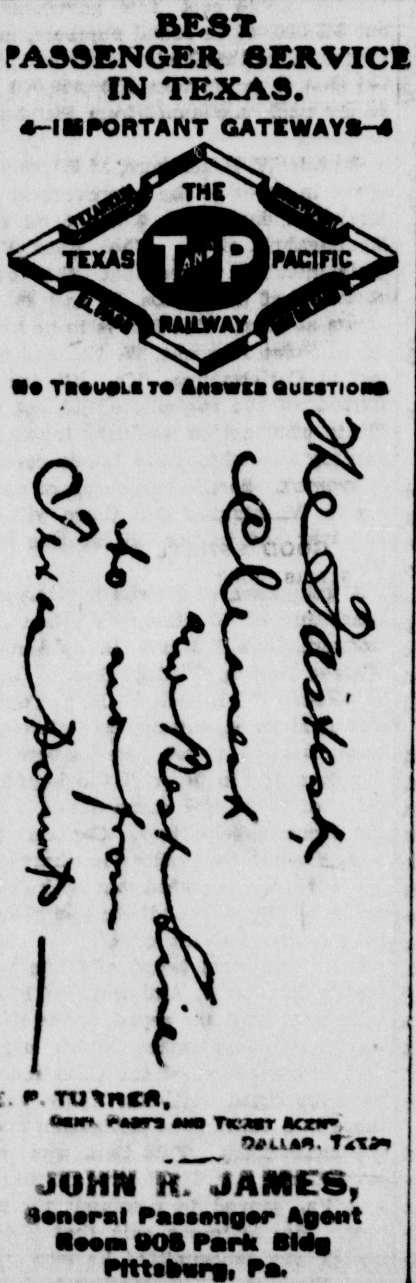 BEST
PASSENGER SERVICE
IN TEXAS.
4-IMPORTANT GATEWAYS-4
THE
TEXAS T AND P PACIFIC
EL PASO
RAILWAY
NO TROUBLE TO ANSWER QUESTIONS
The Fastest,
Cleanest
and Best Line
to and from
Texas Points
E. P. TURNER,
GEN'L PASS'R AND TICKET AGENT
DALLAS, TEXAS
JOHN R. JAMES,
General Passenger Agent
Room 905 Park Bldg
Pittsburg, Pa.